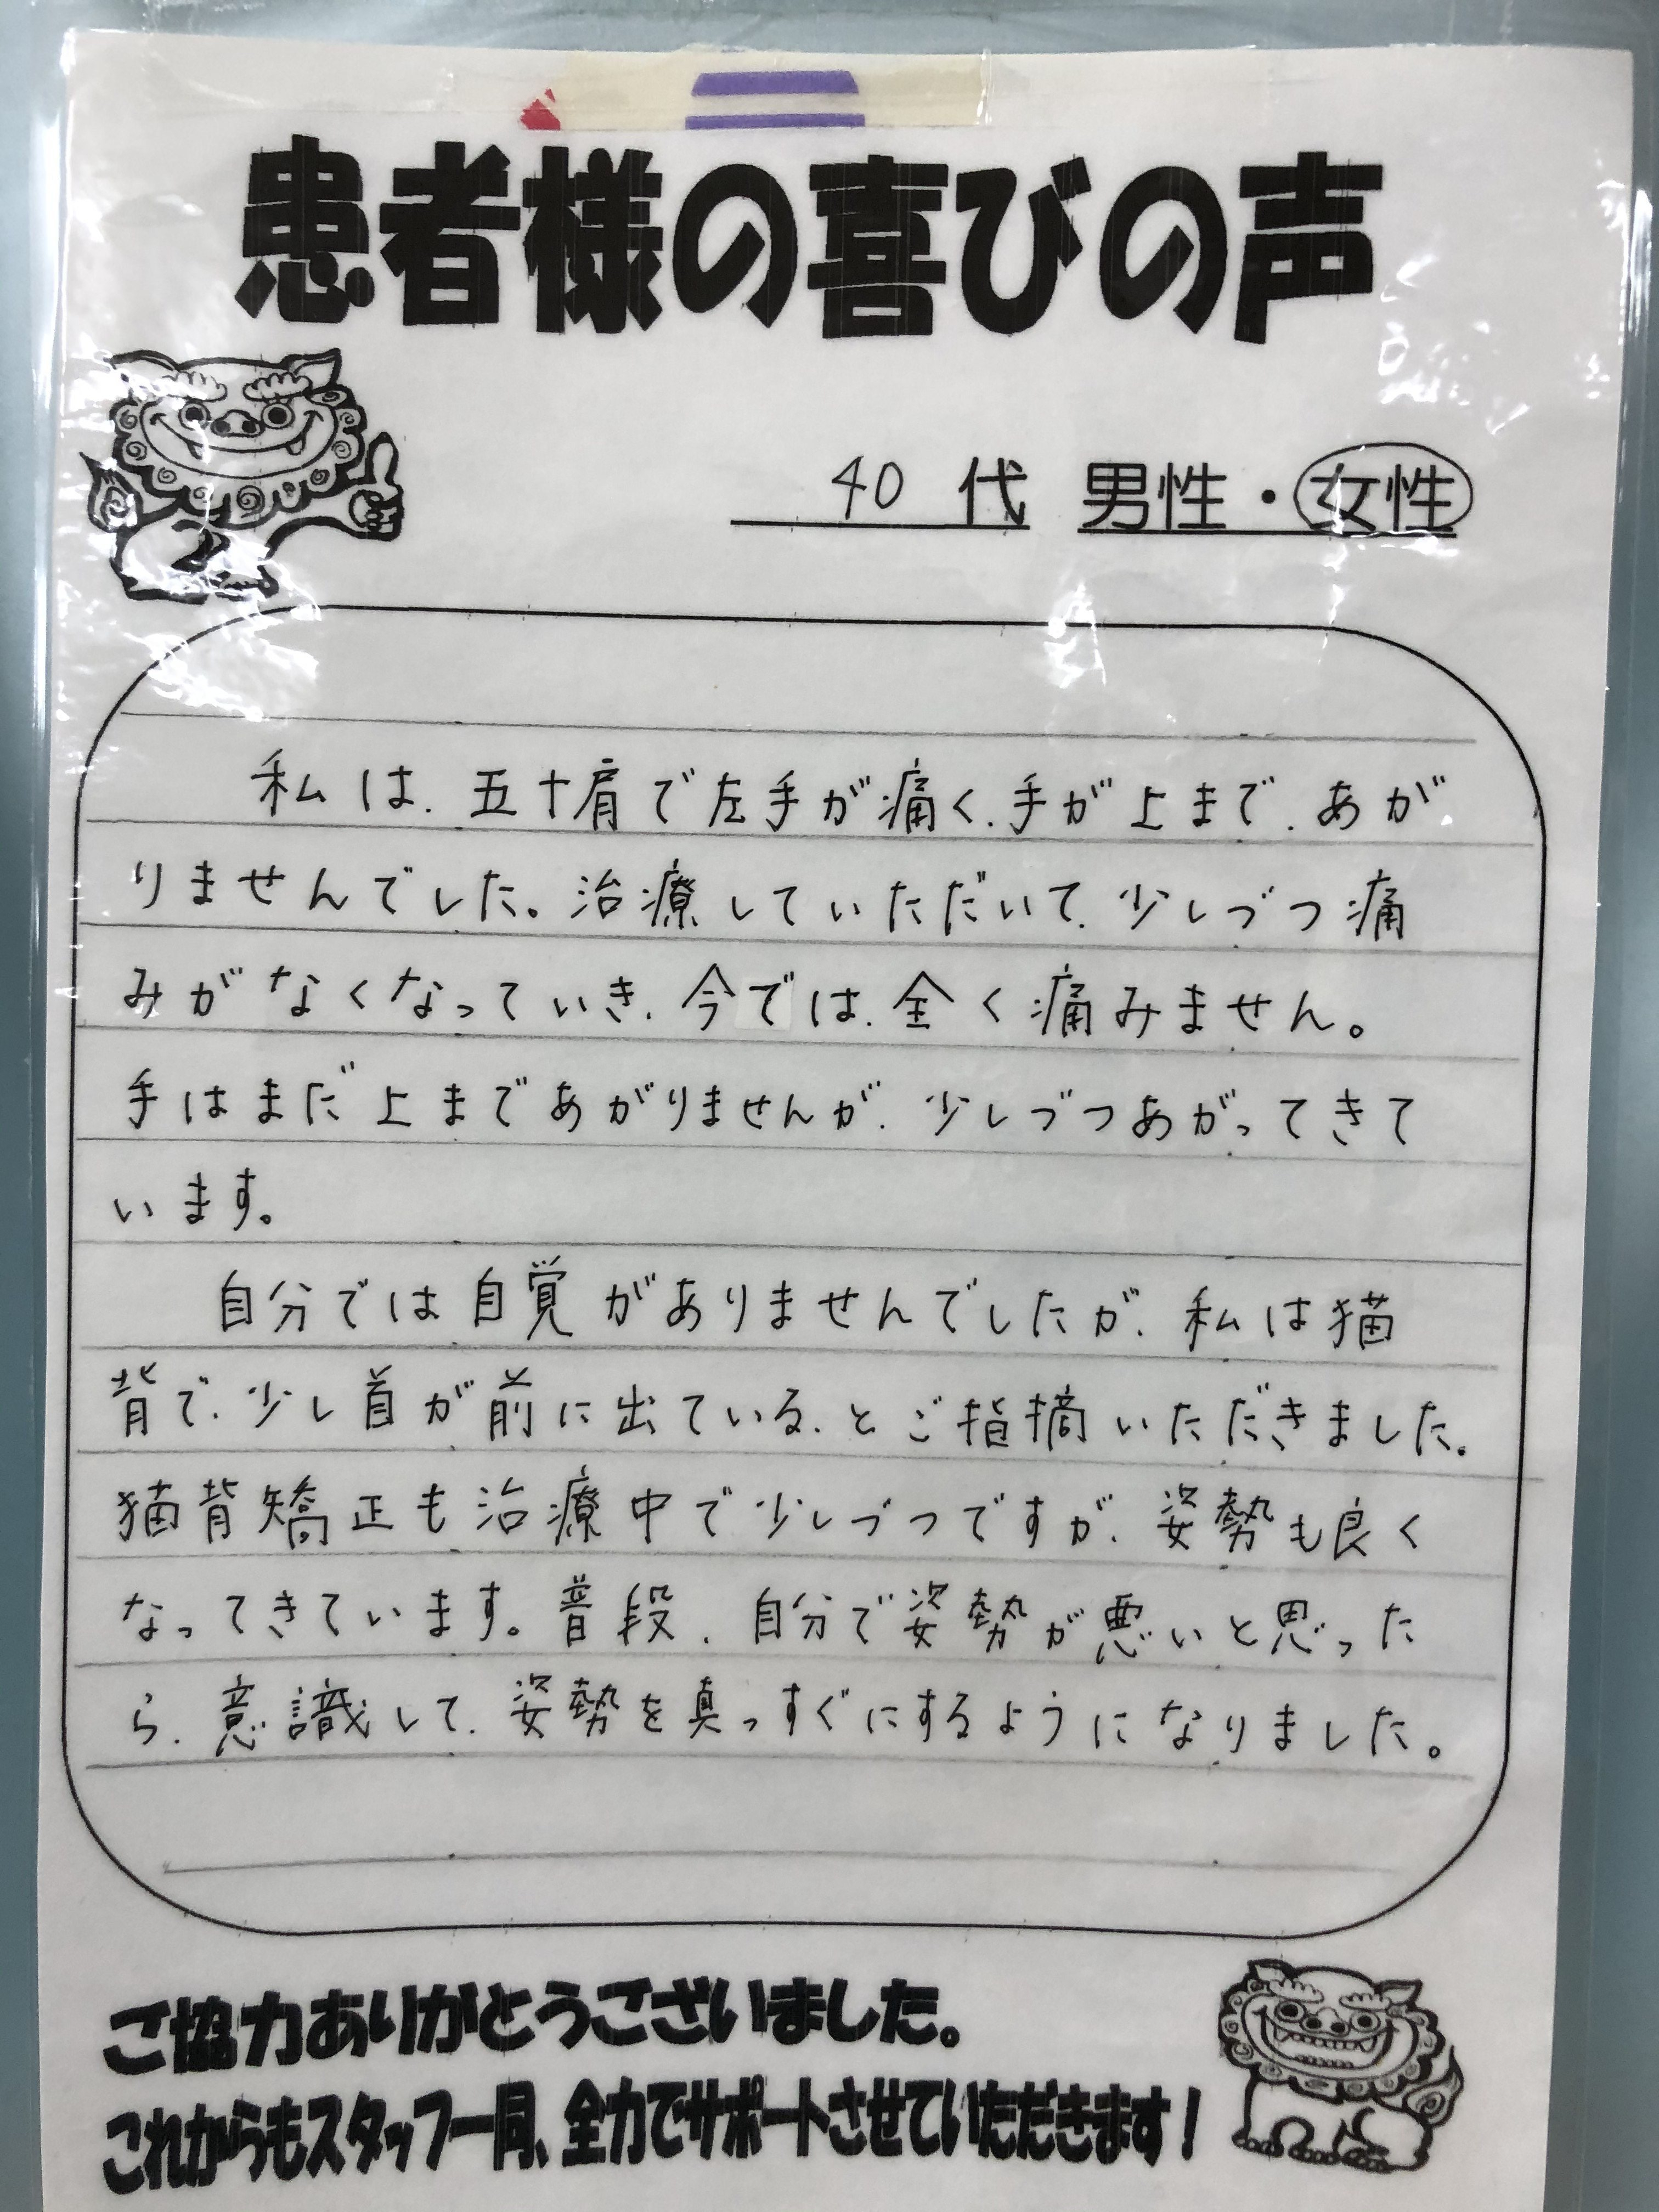 患者様の喜びの声
40 代 男性・女性
私は、五十肩で左手が痛く、手が上まで、あが
りませんでした。治療していただいて、少しづつ痛
みがなくなっていき、今では、全く痛みません。
手はまだ上まであがりませんが、少しづつあがってきて
います。
自分では自覚がありませんでしたが、私は猫
背で、少し首が前に出ている、とご指摘いただきました。
猫背矯正も治療中で少しづつですが、姿勢も良く
なってきています。普段、自分で姿勢が悪いと思った
ら、意識して、姿勢を真っすぐにするようになりました。
ご協力ありがとうございました。
これからもスタッフ一同、全力でサポートさせていただきます！